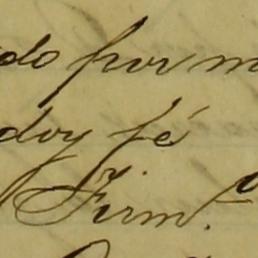 do por m
doy fé
Firm.